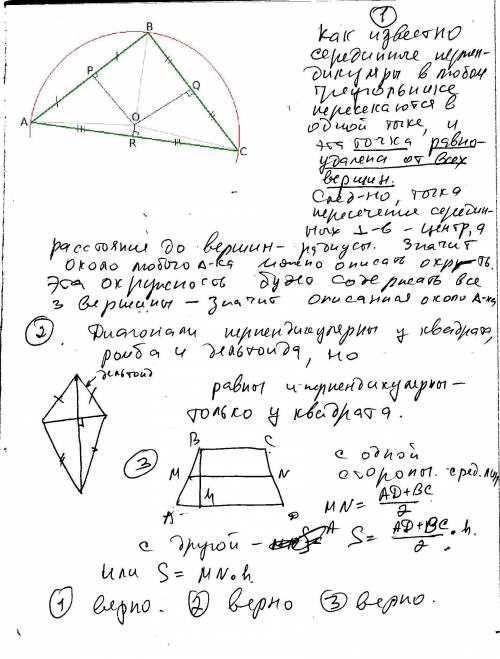 ①
Как известно
серединные перпен-
дикуляры в любом
треугольнике
пересекаются в
одной точке, и
эта точка равно-
удалена от всех
вершин.
След-но, точка
пересечения середин-
ных ⊥-в - центр, а
расстояния до вершин - радиусы. Значит
около любого Δ-ка можно описать окр-ть.
Эта окружность будет содержать все
3 вершины - значит описанная около Δ-ка
B
P
Q
A
O
R
C
② Диагонали перпендикулярны у квадрата,
ромба и дельтоида, но
дельтоид
равны и перпендикулярны -
только у квадрата.
③
B C
M N
h
A D
с одной
стороны. сред. лин
MN = AD+BC / 2
с другой - S = AD+BC / 2 · h.
или S = MN · h.
① верно. ② верно ③ верно.